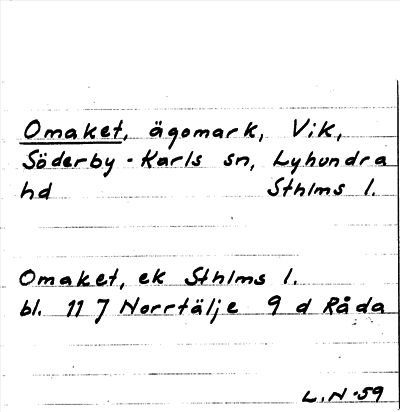 Omaket, ägomark, Vik,
Söderby-Karls sn, Lyhundra
hd Sthlms l.
Omaket, ek Sthlms l.
bl. 11 J Norrtälje 9 d Råda
L.N-59